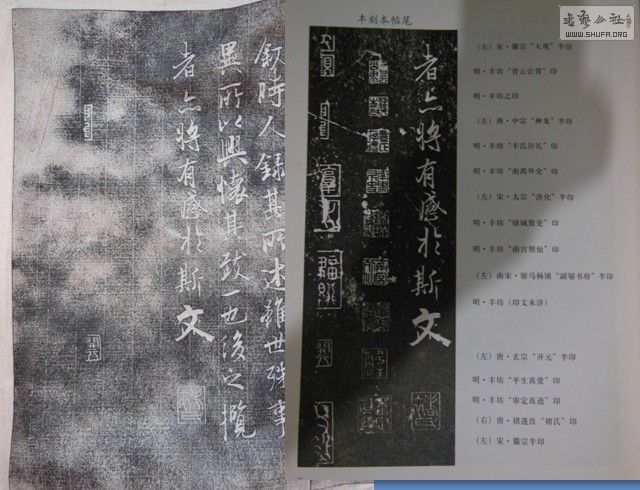 叙時人錄其所述雖世殊事
異所以興懷其致一也後之攬
者亦將有感於斯文
丰刻本帖尾
者亦將有感於斯文
(左)宋·徽宗“大观”半印
明·丰坊“晋云公胄”印
明·丰坊之印
(左)唐·中宗“神龙”半印
明·丰坊“丰氏存礼”印
明·丰坊“南禺外史”印
(左)宋·太宗“淳化”半印
明·丰坊“绿城散吏”印
明·丰坊“南宫别仙”印
(左)南宋·驸马杨镇“副騑书府”半印
明·丰坊(印文未详)
(左)唐·玄宗“开元”半印
明·丰坊“平生真赏”印
明·丰坊“审定真迹”印
(右)唐·褚遂良“褚氏”印
(左)宋·徽宗半印
书艺公社
WWW.SHUFA.ORG